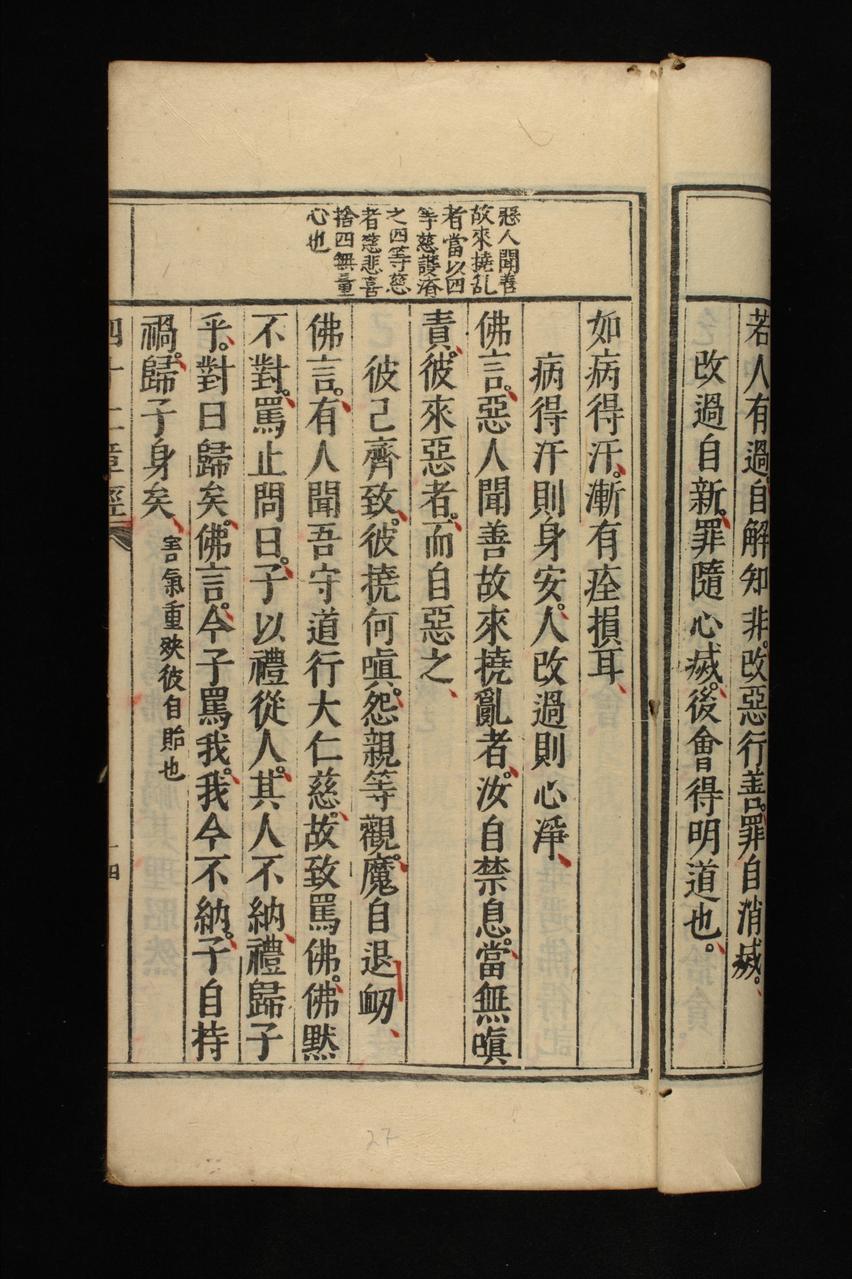 若人有過。自解知非。改惡行善。罪自消滅。
改過自新。罪隨心滅。後會得明道也。
惡人聞善
故來撓乱
者當以四
等慈護濟
之四等慈
者慈悲喜
捨四無量
心也
如病得汗。漸有痊損耳
病得汗則身安。人改過則心淨
佛言。惡人聞善故來撓亂者。汝自禁息。當無嗔
責。彼來惡者。而自惡之
彼己齊致。彼撓何嗔。怨親等觀。魔自退衂
佛言。有人聞吾守道行大仁慈。故致罵佛。佛默
不對。罵止問曰。子以禮從人。其人不納。禮歸子
乎。對曰歸矣。佛言。今子罵我。我今不納。子自持
禍。歸子身矣
害氣重殃彼自貽也
四十二章經
十四
27